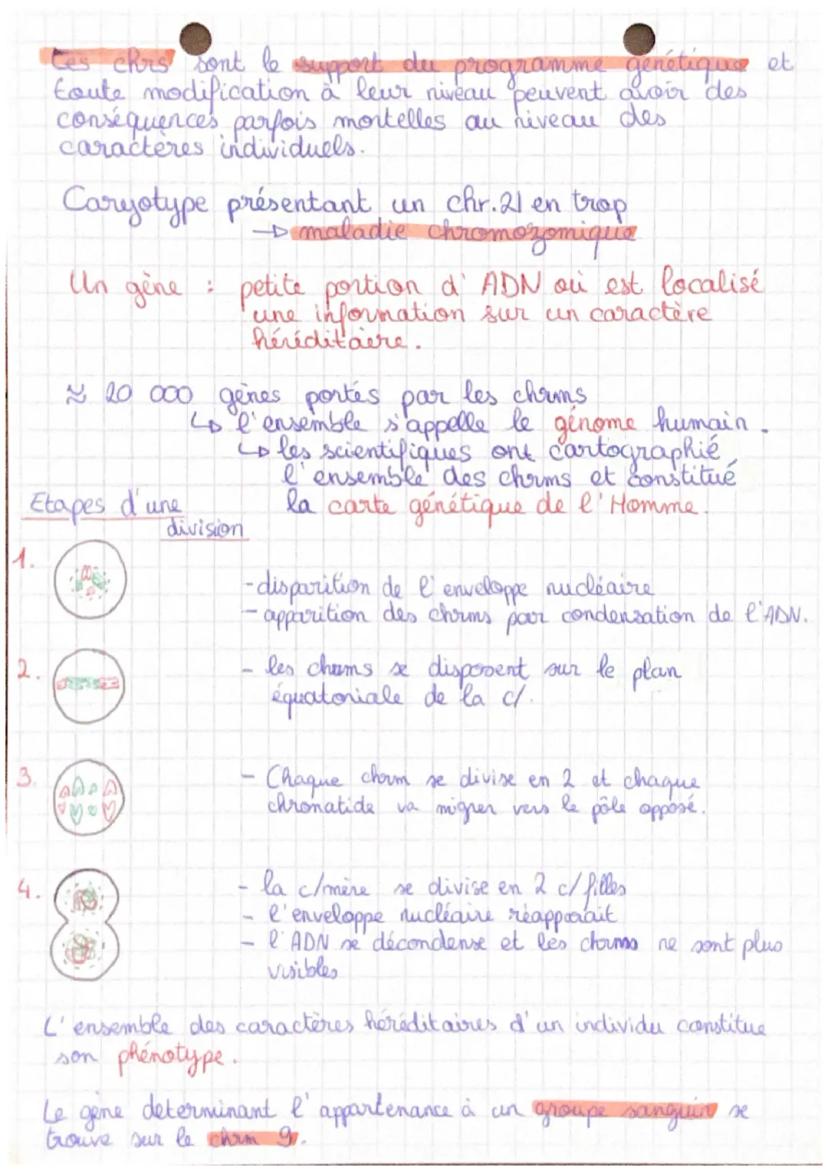 Les chrs sont le support du programme génétique et
toute modification à leur niveau peuvent avoir des
conséquences parfois mortelles au niveau des
caractères individuels.
Caryotype présentant un chr.21 en trop
→ maladie chromozomique
Un gène : petite portion d'ADN où est localisé
une information sur un caractère
héréditaire.
≈ 20 000 gènes portés par les chrms
↳ l'ensemble s'appelle le génome humain.
↳ les scientifiques ont cartographié
l'ensemble des chrms et constitué
la carte génétique de l'Homme.
Etapes d'une
division
1.
- disparition de l'enveloppe nucléaire
- apparition des chrms par condensation de l'ADN.
2.
- les chrms se disposent sur le plan
équatoriale de la c/.
3.
- Chaque chrm se divise en 2 et chaque
chronatide va migrer vers le pôle opposé.
4.
- la c/mère se divise en 2 c/filles
- l'enveloppe nucléaire réapparait
- l'ADN se décondense et les chrms ne sont plus
visibles
L'ensemble des caractères héréditaires d'un individu constitue
son phénotype.
Le gène determinant l'appartenance à un groupe sanguin se
trouve sur le chrm 9.